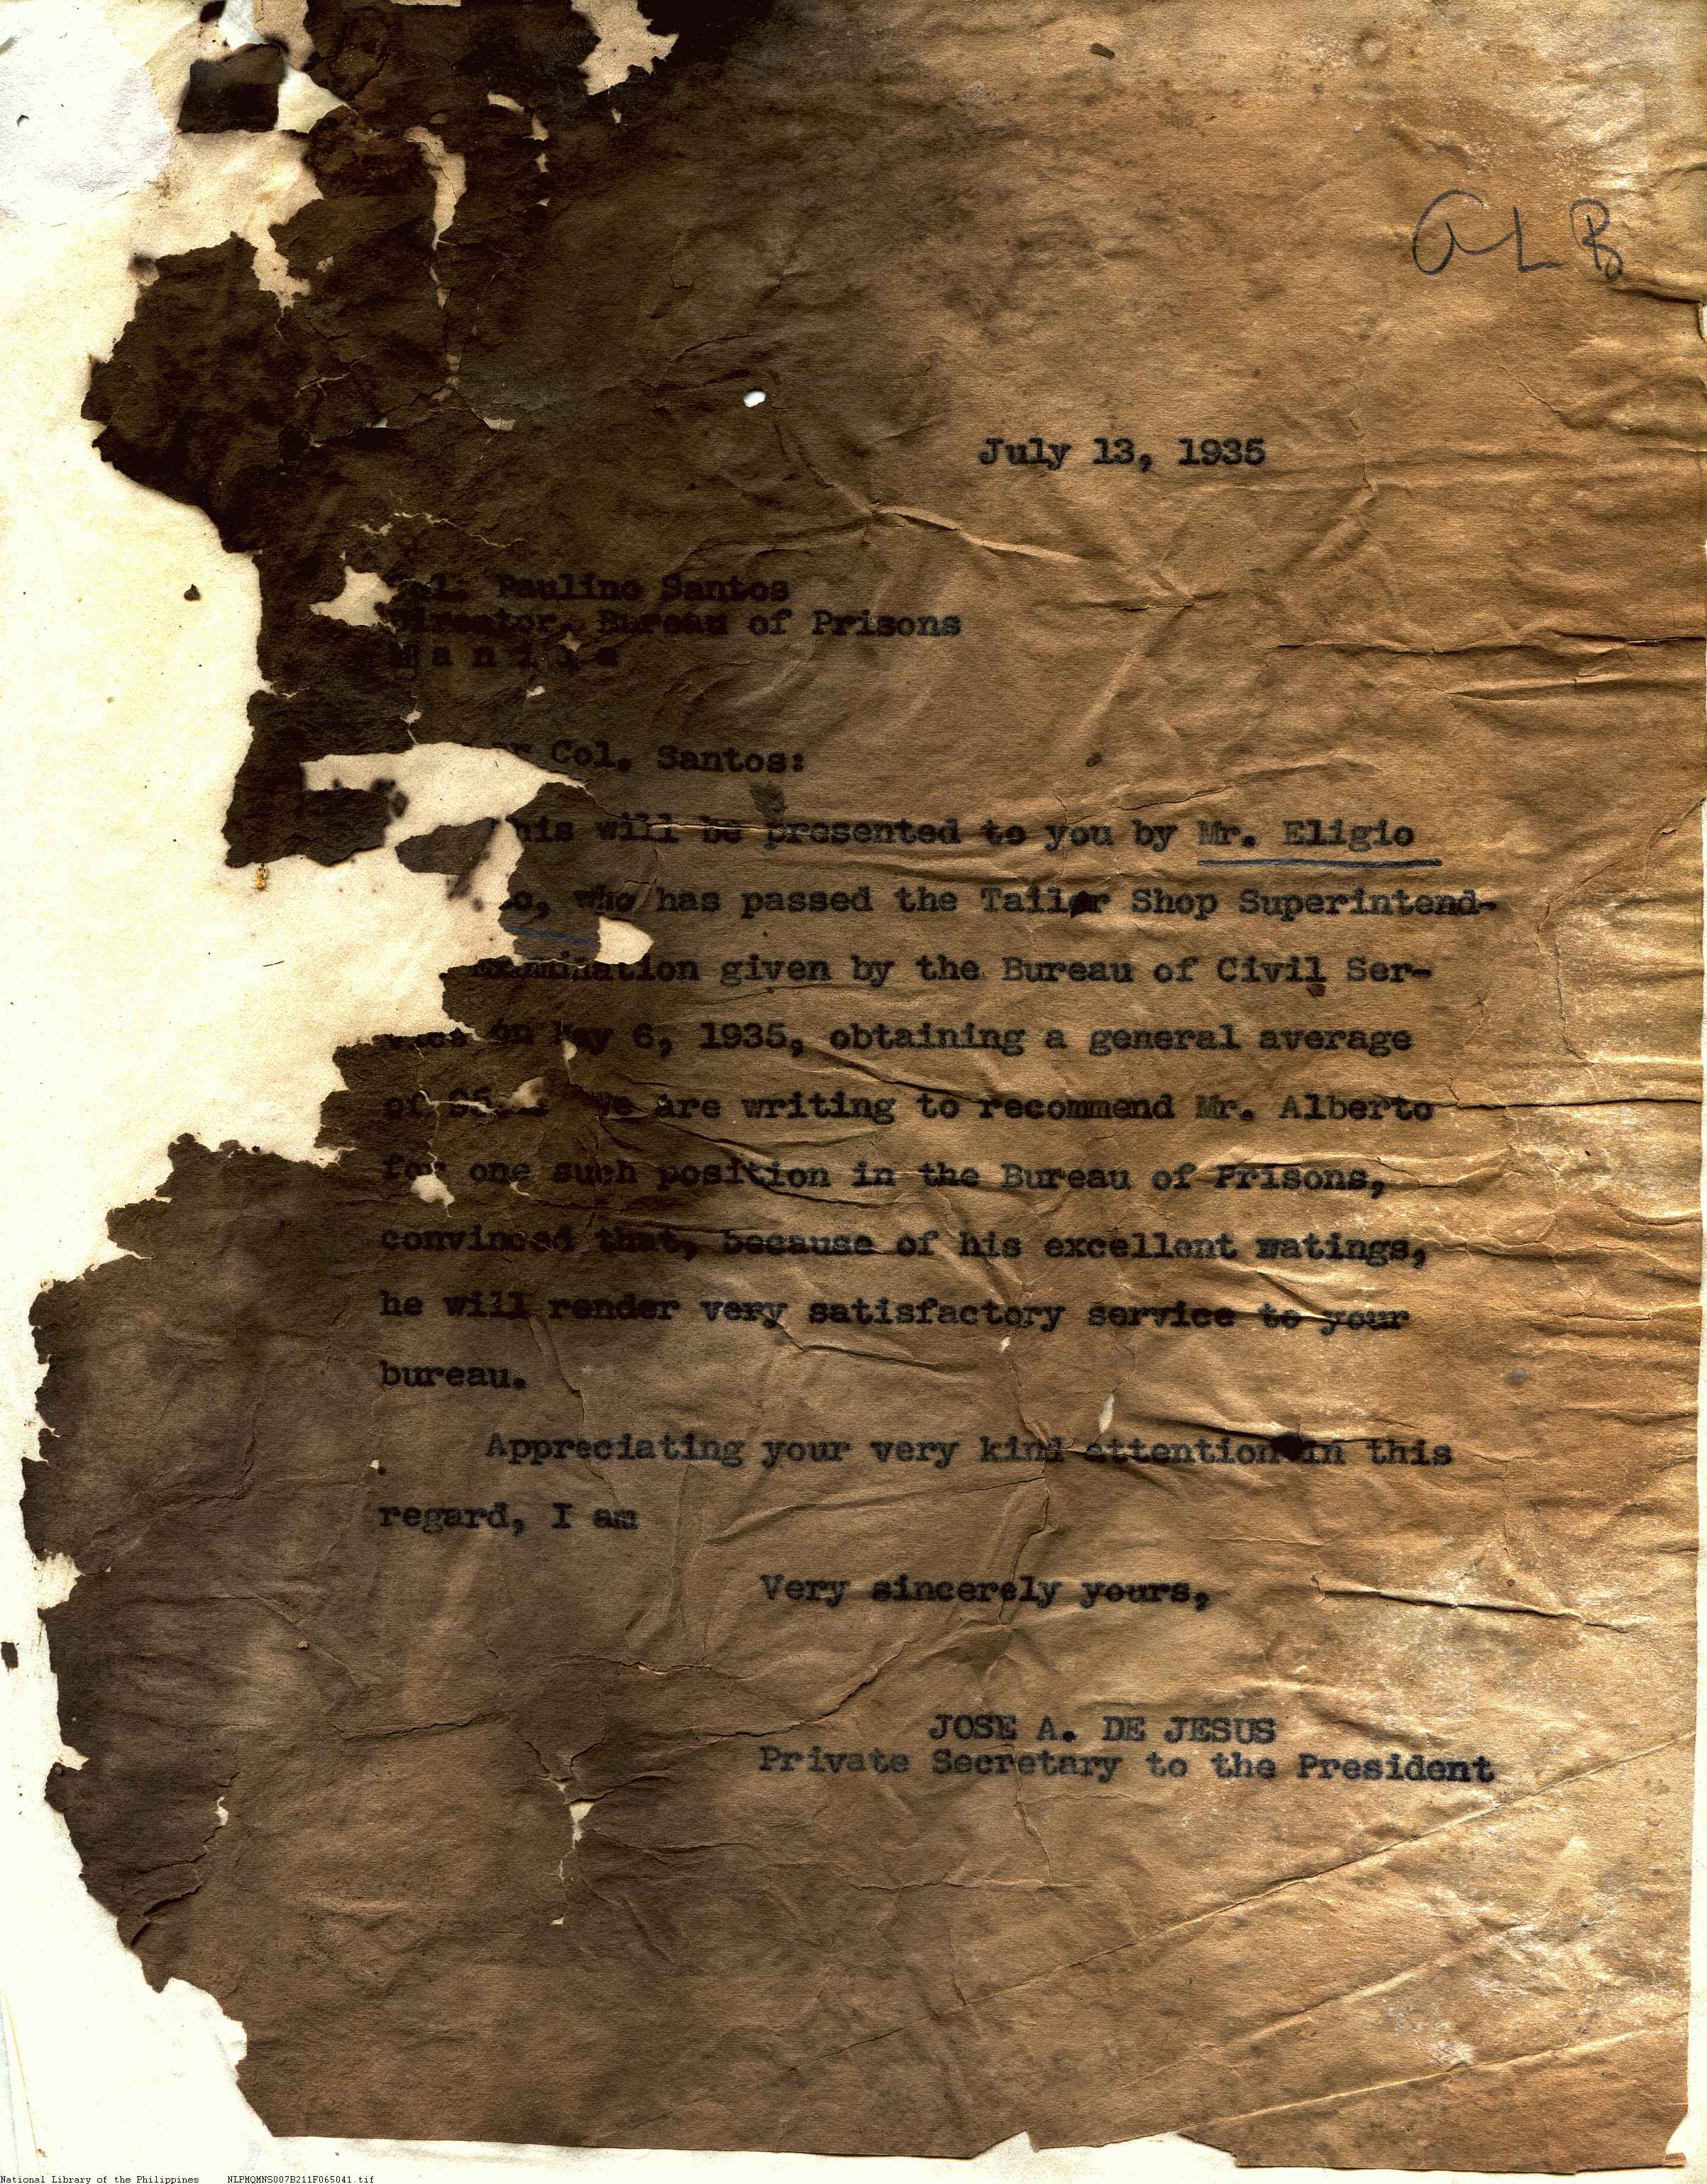 ALB
July 13, 1935
Paulino Santos
Director, Bureau of Prisons
M a n i l a
Col. Santos:
will be presented to you by Mr. Eligio
who has passed the Tailor Shop Superintend-
examination given by the Bureau of Civil Ser-
on May 6, 1935, obtaining a general average
of We are writing to recommend Mr. Alberto
for one such position in the Bureau of Prisons,
convinced that, because of his excellent ratings,
he will render very satisfactory service to your
bureau.
Appreciating your very kind attention in this
regard, I am
Very sincerely yours,
JOSE A. DE JESUS
Private Secretary to the President
National Library of the Philippines NLPMQMNS007B211F065041.tif